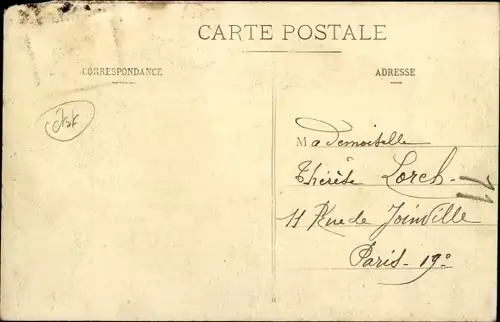 CARTE POSTALE
CORRESPONDANCE
ADRESSE
Mademoiselle
Thérèse Lorch
11 Rue de Joinville
Paris - 19e
11